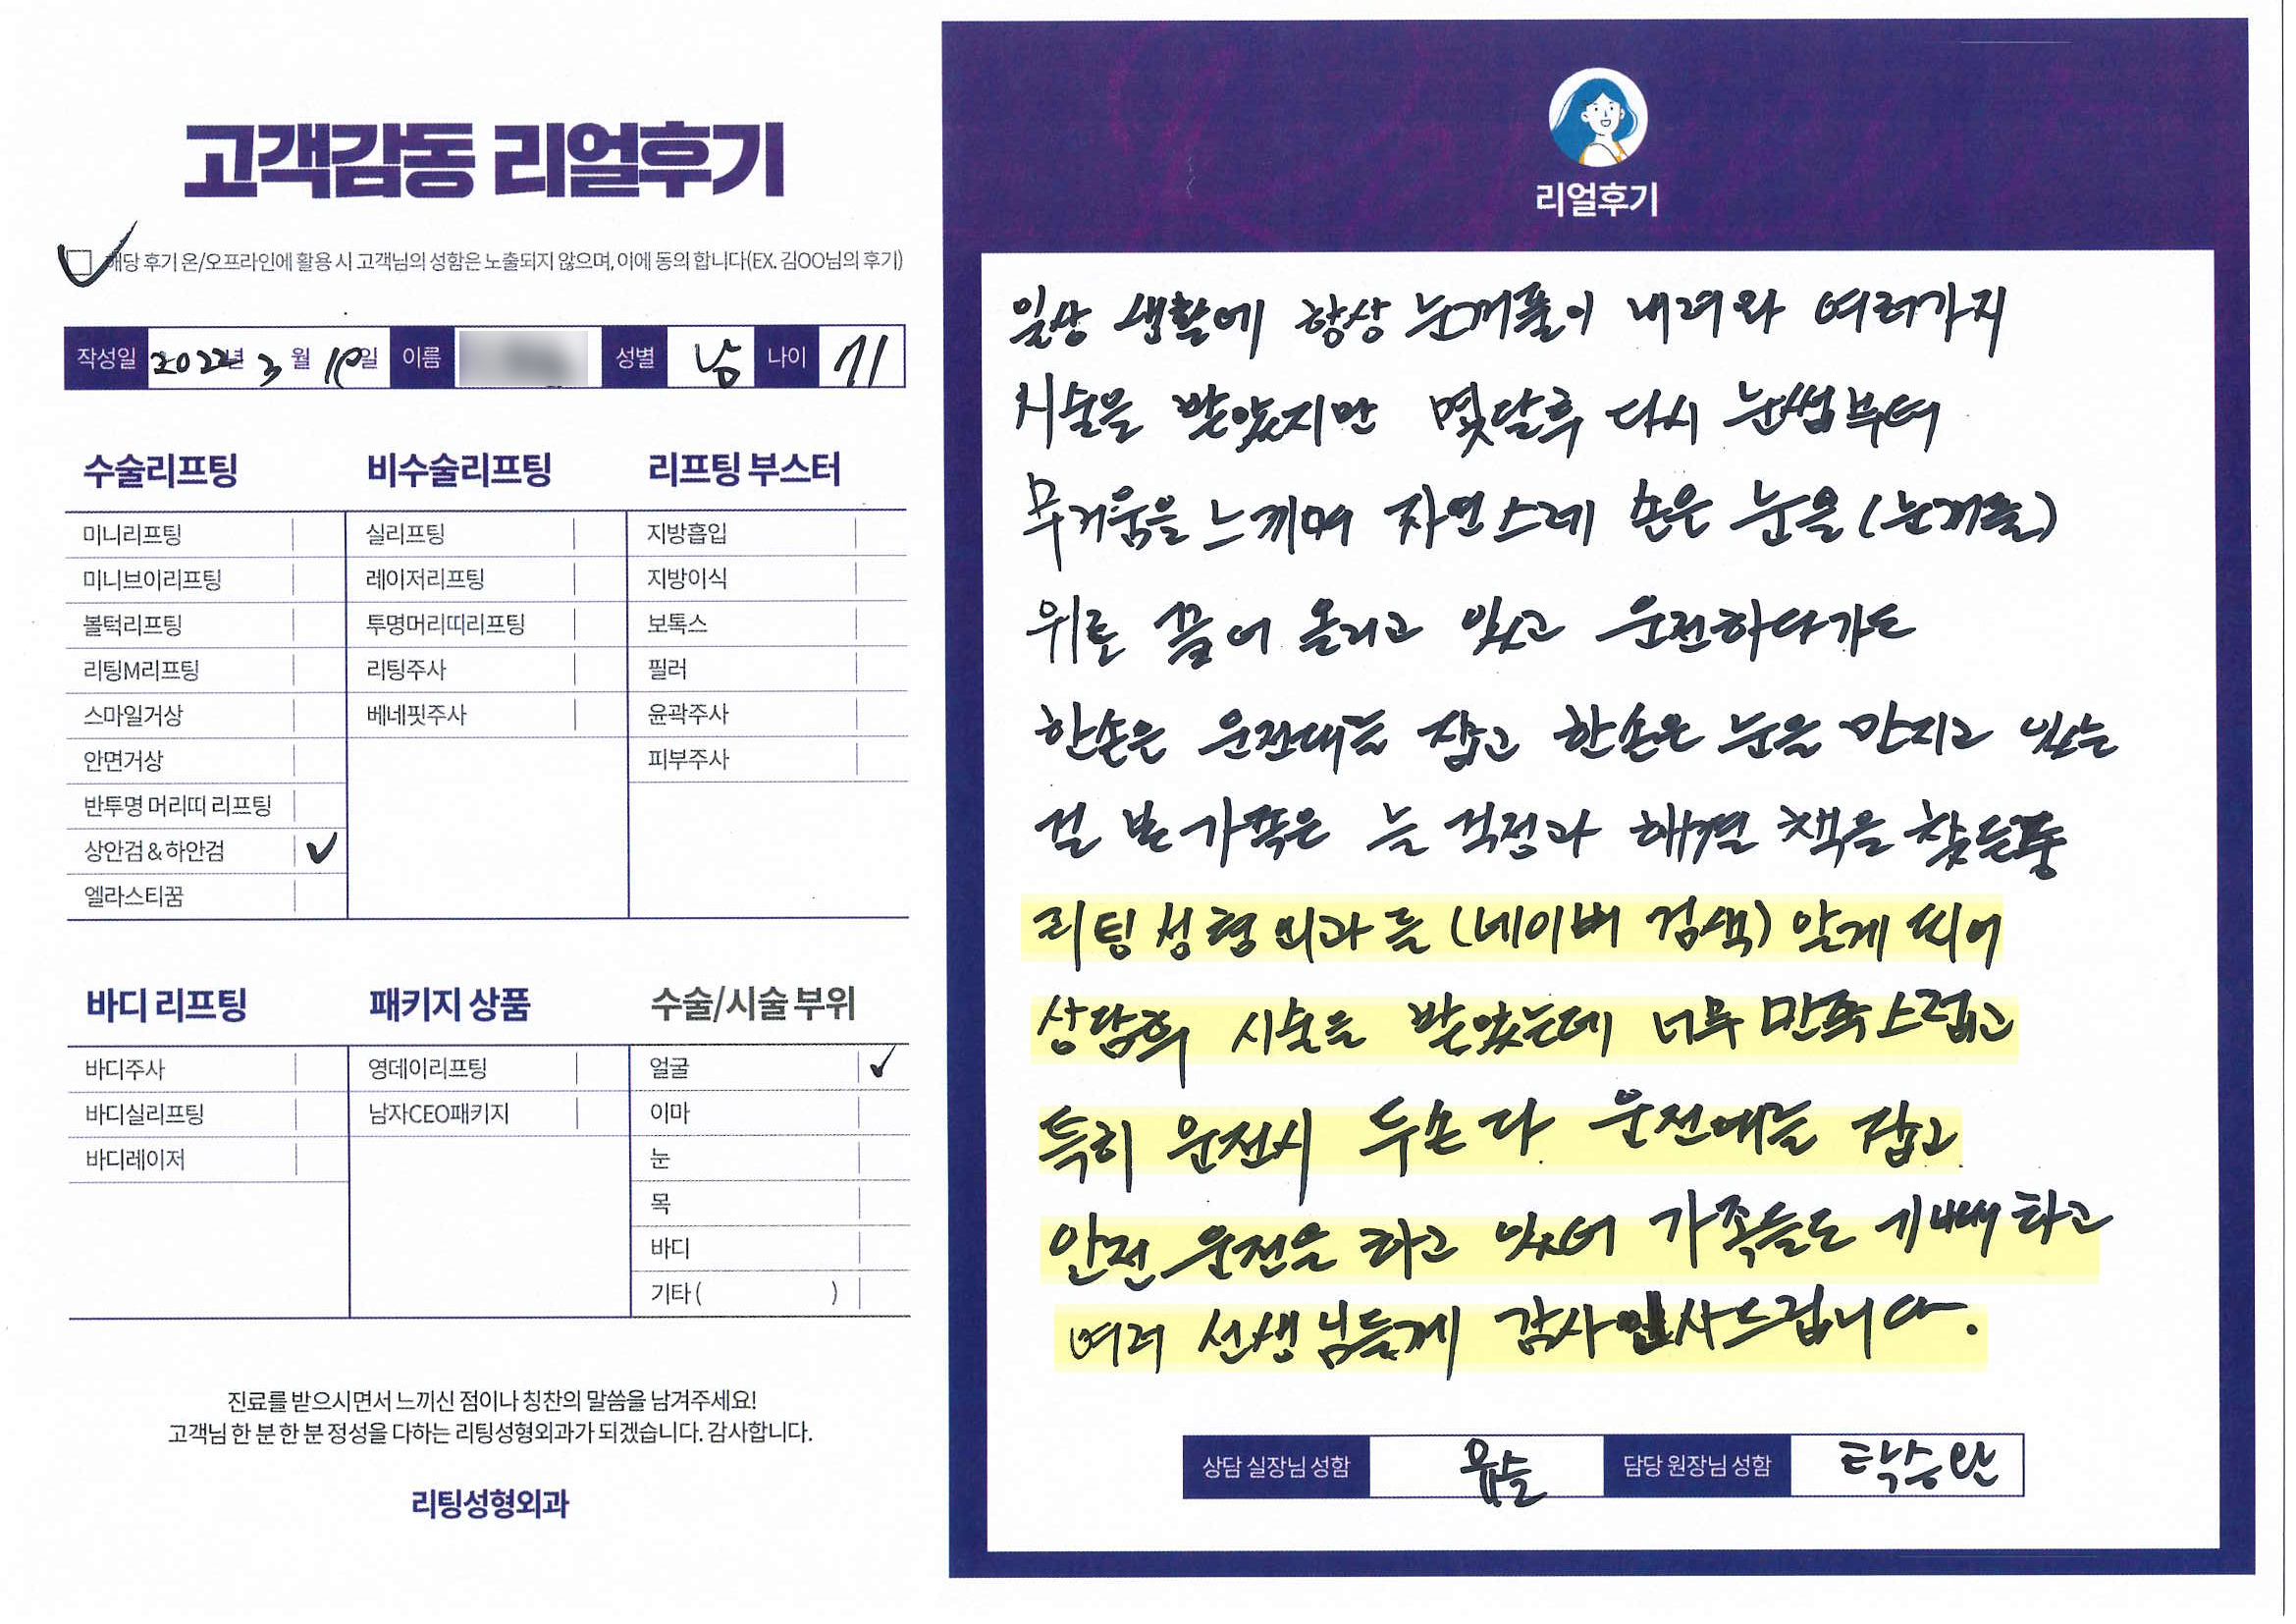 고객감동 리얼후기
해당 후기 온/오프라인에 활용 시 고객님의 성함은 노출되지 않으며, 이에 동의 합니다(EX. 김OO님의 후기)
작성일 2022년 3월 10일 이름 성별 남 나이 71
수술리프팅
미니리프팅
미니브이리프팅
볼턱리프팅
리팅M리프팅
스마일거상
안면거상
반투명 머리띠 리프팅
상안검 & 하안검
엘라스티꿈
비수술리프팅
실리프팅
레이저리프팅
투명머리띠리프팅
리팅주사
베네핏주사
리프팅 부스터
지방흡입
지방이식
보톡스
필러
윤곽주사
피부주사
바디 리프팅
바디주사
바디실리프팅
바디레이저
패키지 상품
영데이리프팅
남자CEO패키지
수술/시술 부위
얼굴
이마
눈
목
바디
기타 ( )
진료를 받으시면서 느끼신 점이나 칭찬의 말씀을 남겨주세요!
고객님 한 분 한 분 정성을 다하는 리팅성형외과가 되겠습니다. 감사합니다.
리팅성형외과
리얼후기
일상 생활에 항상 눈꺼풀이 내려와 여러가지
시술을 받았지만 몇달후 다시 눈썹부터
무거움을 느끼며 자연스레 손은 눈을 (눈꺼풀)
위로 끌어 올리고 있고 운전하다가도
한손은 운전대를 잡고 한손은 눈을 만지고 있는
걸 본 가족은 늘 걱정과 해결 책을 찾는중
리팅성형외과를 (네이버 검색) 알게 되어
상담후 시술을 받았는데 너무 만족스럽고
특히 운전시 두손 다 운전대를 잡고
안전 운전을 하고 있어 가족들도 기뻐하고
여러 선생님들께 감사인사드립니다.
상담 실장님 성함 담당 원장님 성함 탁승안